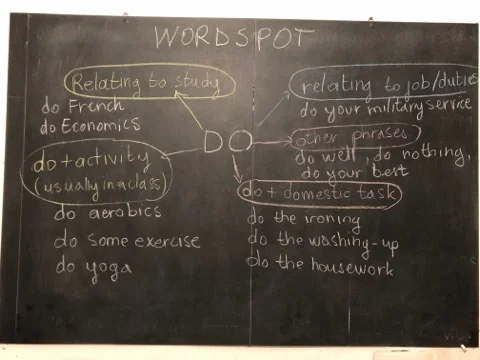 WORDSPOT
Relating to study
do French
do Economics
relating to job/duties
do your military service
DO
other phrases
do well, do nothing,
do your best
do + activity
(usually in a class)
do aerobics
do some exercise
do yoga
do + domestic task
do the ironing
do the washing-up
do the housework